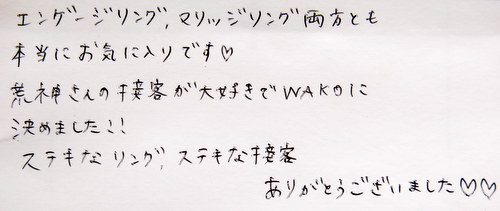 エンゲージリング,マリッジリング両方とも
本当にお気に入りです♡
荒神さんの接客が大好きでWAKOに
決めました!!
ステキなリング,ステキな接客
ありがとうございました♡♡